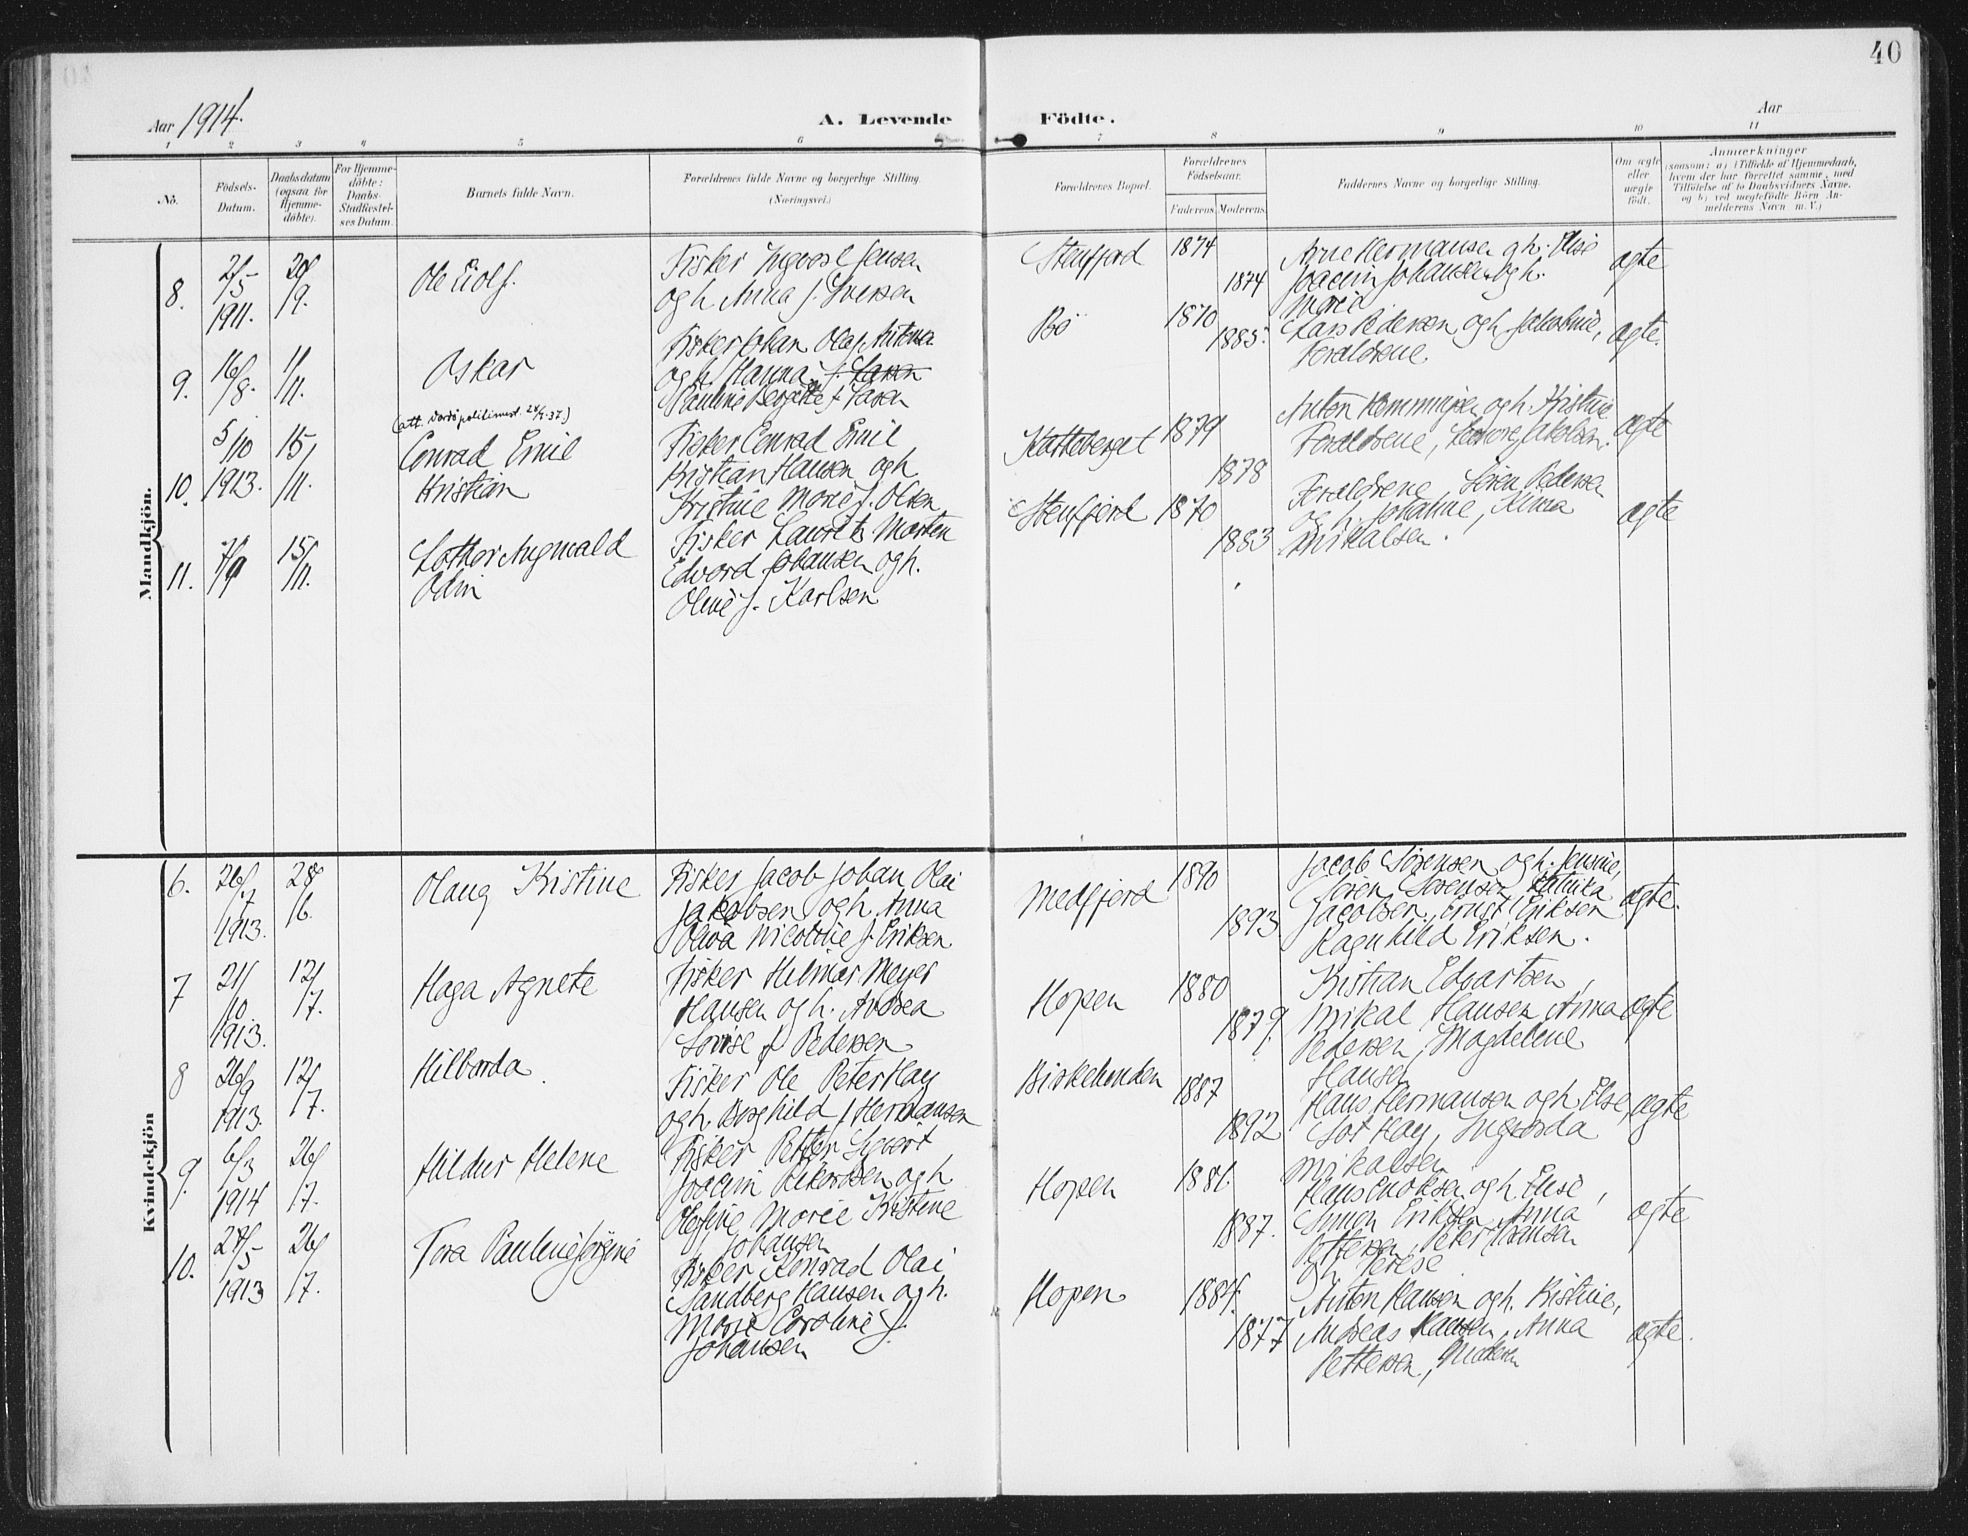 40
Aar 1914.
A. Levende Födte.
Aar
1 2 3 4 5 6 7 8 9 10 11
No.
Födsels-Datum.
Daabsdatum (ogsaa for Hjemme-döbte).
For Hjemme-döbte: Daabs-Stadfæstel-ses Datum.
Barnets fulde Navn.
Forældrenes fulde Navne og borgerlige Stilling. (Næringsvei.)
Forældrenes Bopæl.
Forældrenes Födselsaar.
Faderens. Moderens.
Faddernes Navne og borgerlige Stilling.
Om ægte eller uægte födt.
Anmærkninger
(saasom: a) i Tilfælde af Hjemmedaab,
hvem der har forrettet samme, med
Tilföielse af to Daabsvidners Navne.
og b) ved uægtefödte Börn An-
melderens Navn m. V.)
Mandkjön.
8.
2/5 1911.
20/9.
Ole Eiolf.
Fisker Ingvald Jensen
og h. Anna f. Iversen
Stenfjord
1874
1874
Arne Hermansen og h. Else
Joacim Johansen og h.
Marie
ægte
9.
16/8.
1/11.
Oskar
Fisker Johan Olaf
og h. Hanna f. Larsen
Pauline Bergitte f. Larsen
Bö
1870
1885.
Lars Pedersen og h. Jakobine,
Forældrene.
ægte.
10.
5/10 1913.
15/11.
(att. Vardö politimest.
Conrad Emil
Kristian
Fisker Conrad Emil
Kristian Hansen og h.
Kristine Marie f. Olsen
Katteberget
1879
1878
Anton Hemmingsen og h. Kristine
Forældrene, Jakobsen.
ægte
11.
7/9
15/11.
Lothar Angvald
Odin
Fisker Laurits Morten
Edvard Johansen og h.
Oline f. Karlsen
Stenfjord
1870
1883
Forældrene, Sören Pedersen
og h. Johanne,
Mikalsen.
ægte
Kvindekjön
6.
26/7 1913.
28/6.
Olaug Kristine
Fisker Jacob Johan Olai
Jakobsen og h. Anna
Olava Nicoline f. Eriksen
Medfjord
1890
1893.
Jacob Sörensen og h. Jensine,
Sören Sörensen,
Jacobsen, Ernst Eriksen
Ragnhild Eriksen.
ægte.
7
21/10 1913.
12/7.
Haga Agnete
Fisker Hilmar Meyer
Hansen og h. Andrea
Lovise f. Pedersen
Hopen
1880
1879.
Kristian Edvartsen,
Mikal Hansen, Anna
Pedersen, Magdelene
Hansen
ægte
8
26/9 1913.
12/7.
Hilborda.
Fisker Ole Peter Hay
og h. Borghild f. Hermansen
1887
1892.
Hans Hermansen og h. Else,
Lot Hay, Ingvarda
Mikalsen
ægte
9.
6/3 1914
26/7.
Hildur Helene
Fisker Petter Sivert
Joacim Rikardsen og h.
Olefine Marie Kristine
Johansen
Hopen
1881.
1887.
Hans Enoksen og h. Else,
Simon Eriksen, Anna
Pettersen, Peter Hansen
og h. Terese
ægte
10.
27/5 1913
26/7.
Tora Pauline Jörgine
Fisker Konrad Olai
Sandberg Hansen og h.
Marie Caroline f.
Johansen
Hopen
1884.
1877
Anton Hansen og h. Kristine,
Andreas Hansen, Anna
Pettersen, Moderen
ægte.